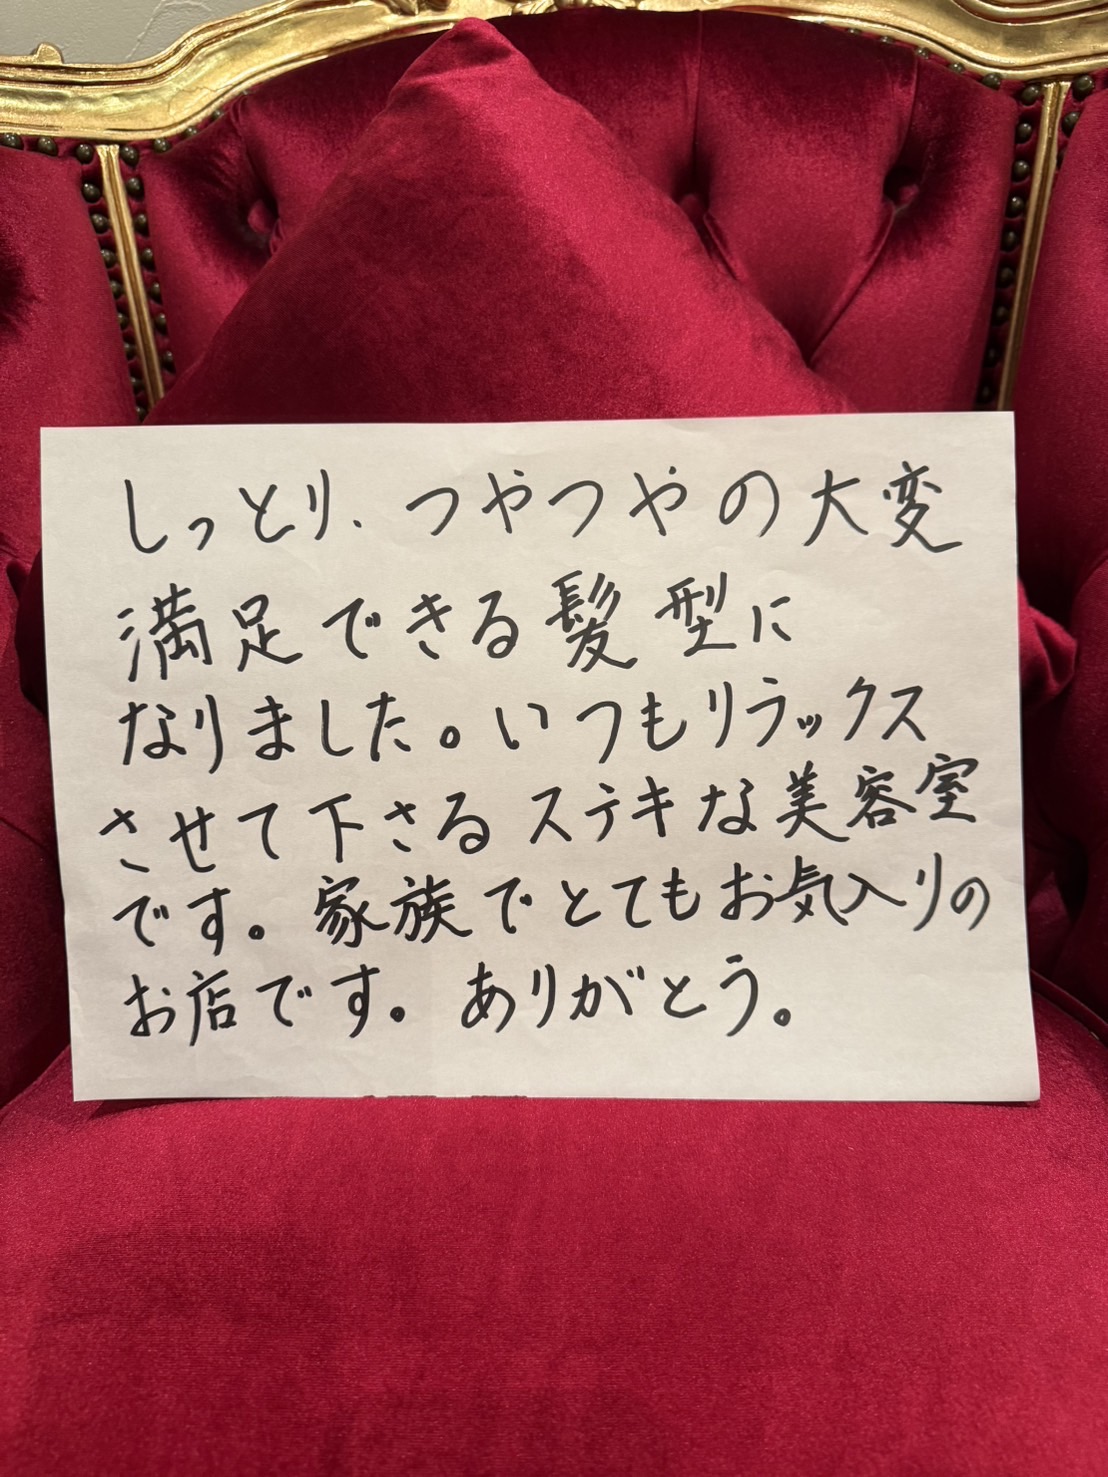 しっとり、つやつやの大変
満足できる髪型に
なりました。いつもリラックス
させて下さるステキな美容室
です。家族でとてもお気入りの
お店です。ありがとう。